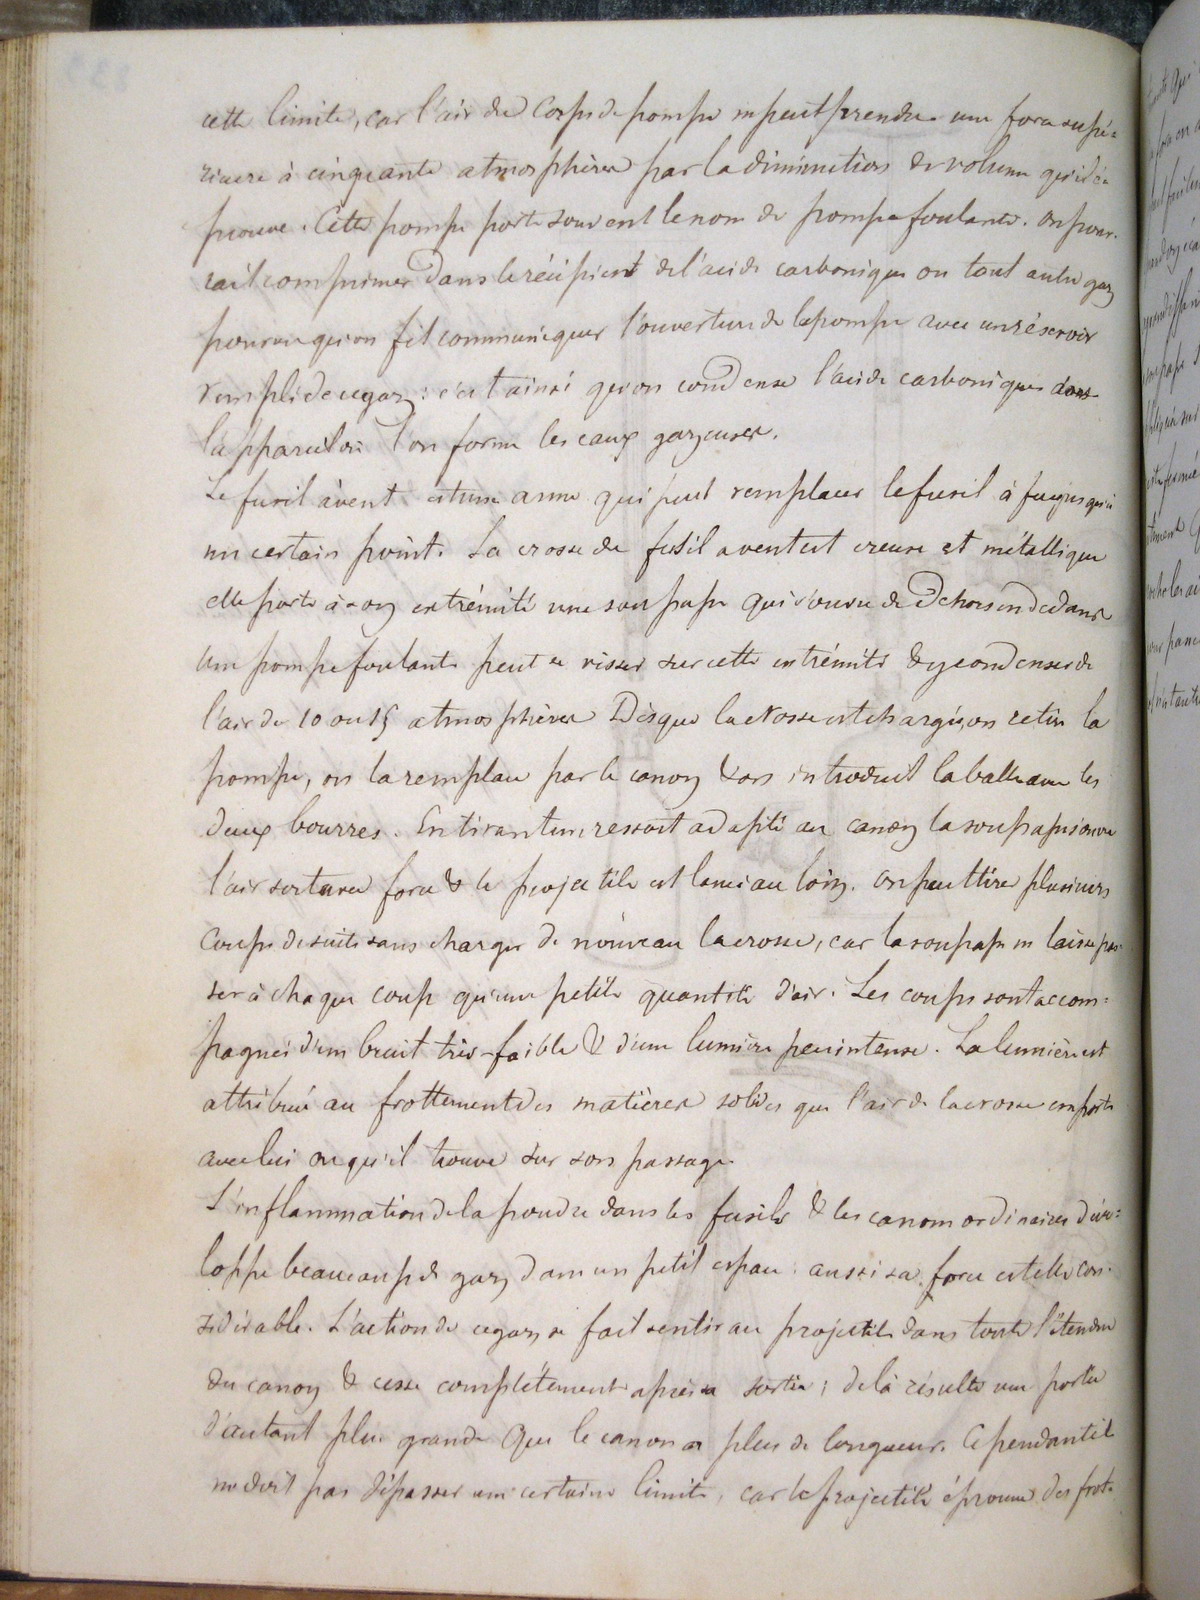 cette limite, car l'air du corps de pompe ne peut prendre une force supé=
rieure à cinquante atmosphères par la diminution de volume qu'il é=
prouve. Cette pompe porte souvent le nom de pompe foulante. On pour=
rait comprimer dans le récipient de l'acide carbonique ou tout autre gaz
pourvu qu'on fit communiquer l'ouverture de la pompe avec un réservoir
rempli de ce gaz : c'est ainsi qu'on condense l'acide carbonique dans
l'appareil où l'on forme les eaux gazeuses.
Le fusil à vent est une arme qui peut remplacer le fusil à feu jusqu'à
un certain point. La crosse du fusil à vent est creuse et métallique
elle porte à son extrémité une soupape qui s'ouvre de dehors en dedans
une pompe foulante peut se visser sur cette extrémité & y condenser de
l'air de 10 ou 15 atmosphères Dès que la crosse est chargée, on retire la
pompe, on la remplace par le canon & on introduit la balle avec les
deux bourres. En tirant un ressort adapté au canon la soupape s'ouvre
l'air sort avec force & le projectile est lancé au loin. On peut tirer plusieurs
coups de suite sans charger de nouveau la crosse, car la soupape ne laisse pas=
ser à chaque coup qu'une petite quantité d'air. Les coups sont accom=
pagnés d'un bruit très-faible & d'une lumière peu intense. La lumière est
attribuée au frottement des matières solides que l'air de la crosse emporte
avec lui ou qu'il trouve sur son passage.
L'inflammation de la poudre dans les fusils & les canons ordinaires déve=
loppe beaucoup de gaz dans un petit espace : aussi sa force est elle con=
sidérable. L'action de ce gaz se fait sentir au projectile dans toute l'étendue
du canon & cesse complètement après sa sortie ; delà résulte une portée
d'autant plus grande que le canon a plus de longueur. Cependant il
ne doit pas dépasser une certaine limite, car le projectile éprouve des frot=